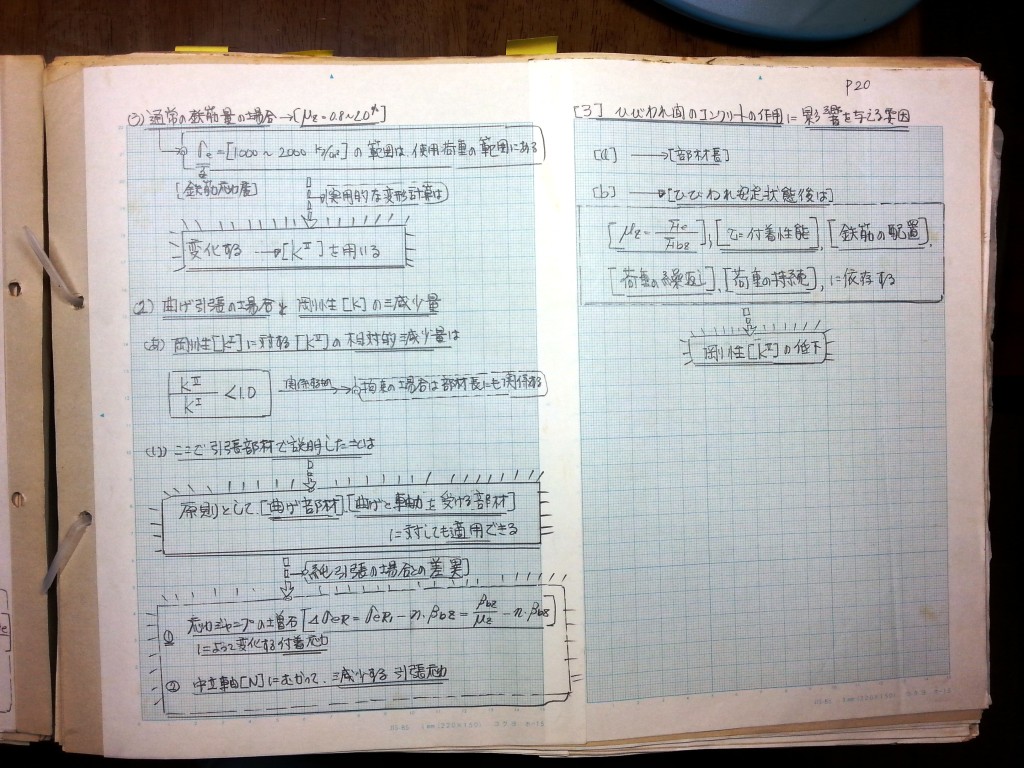 (3) 通常の鉄筋量の場合→[μz=0.8~2.0%]
→σe=[1000~2000 kg/cm²]の範囲は、使用荷重の範囲にある
[鉄筋応力度]
実用的な変形計算は
変化する→[KⅡ]を用いる
(2) 曲げ引張の場合 剛性[K]の減少量
(a) 剛性[KⅠ]に対する[KⅡ]の相対的減少量は
KⅡ/KⅠ <1.0 → 拘束の場合は部材長にも関係する
(1) ここで引張部材で説明したことは
原則として、[曲げ部材]、[曲げと軸力を受ける部材]
に対しても適用できる
純引張の場合との差異
① 応力ジャンプの大きさ[ΔσeR=σeRr-n・βbz=βbz/μz-n・βbz]
によって変化する付着応力
② 中立軸[N]にむかって、減少する引張応力
P20
[3] ひびわれ間のコンクリートの作用に影響を与える要因
[a] →[部材長]
[b] →[ひびわれ安定状態後は]
[μz=Fe/Fbz]、[τ=付着性能]、[鉄筋の配置]、
[荷重の繰返し]、[荷重の持続]、に依存する
剛性[KⅡ]の低下